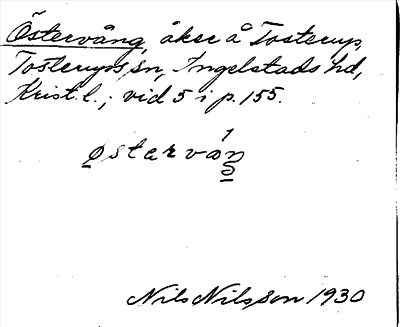 Östervång, åker å Tosterup,
Tosterups sn, Ingelstads hd,
Krist. l.; vid 5 i p. 155.
østarvaŋ
Nils Nilsson 1930